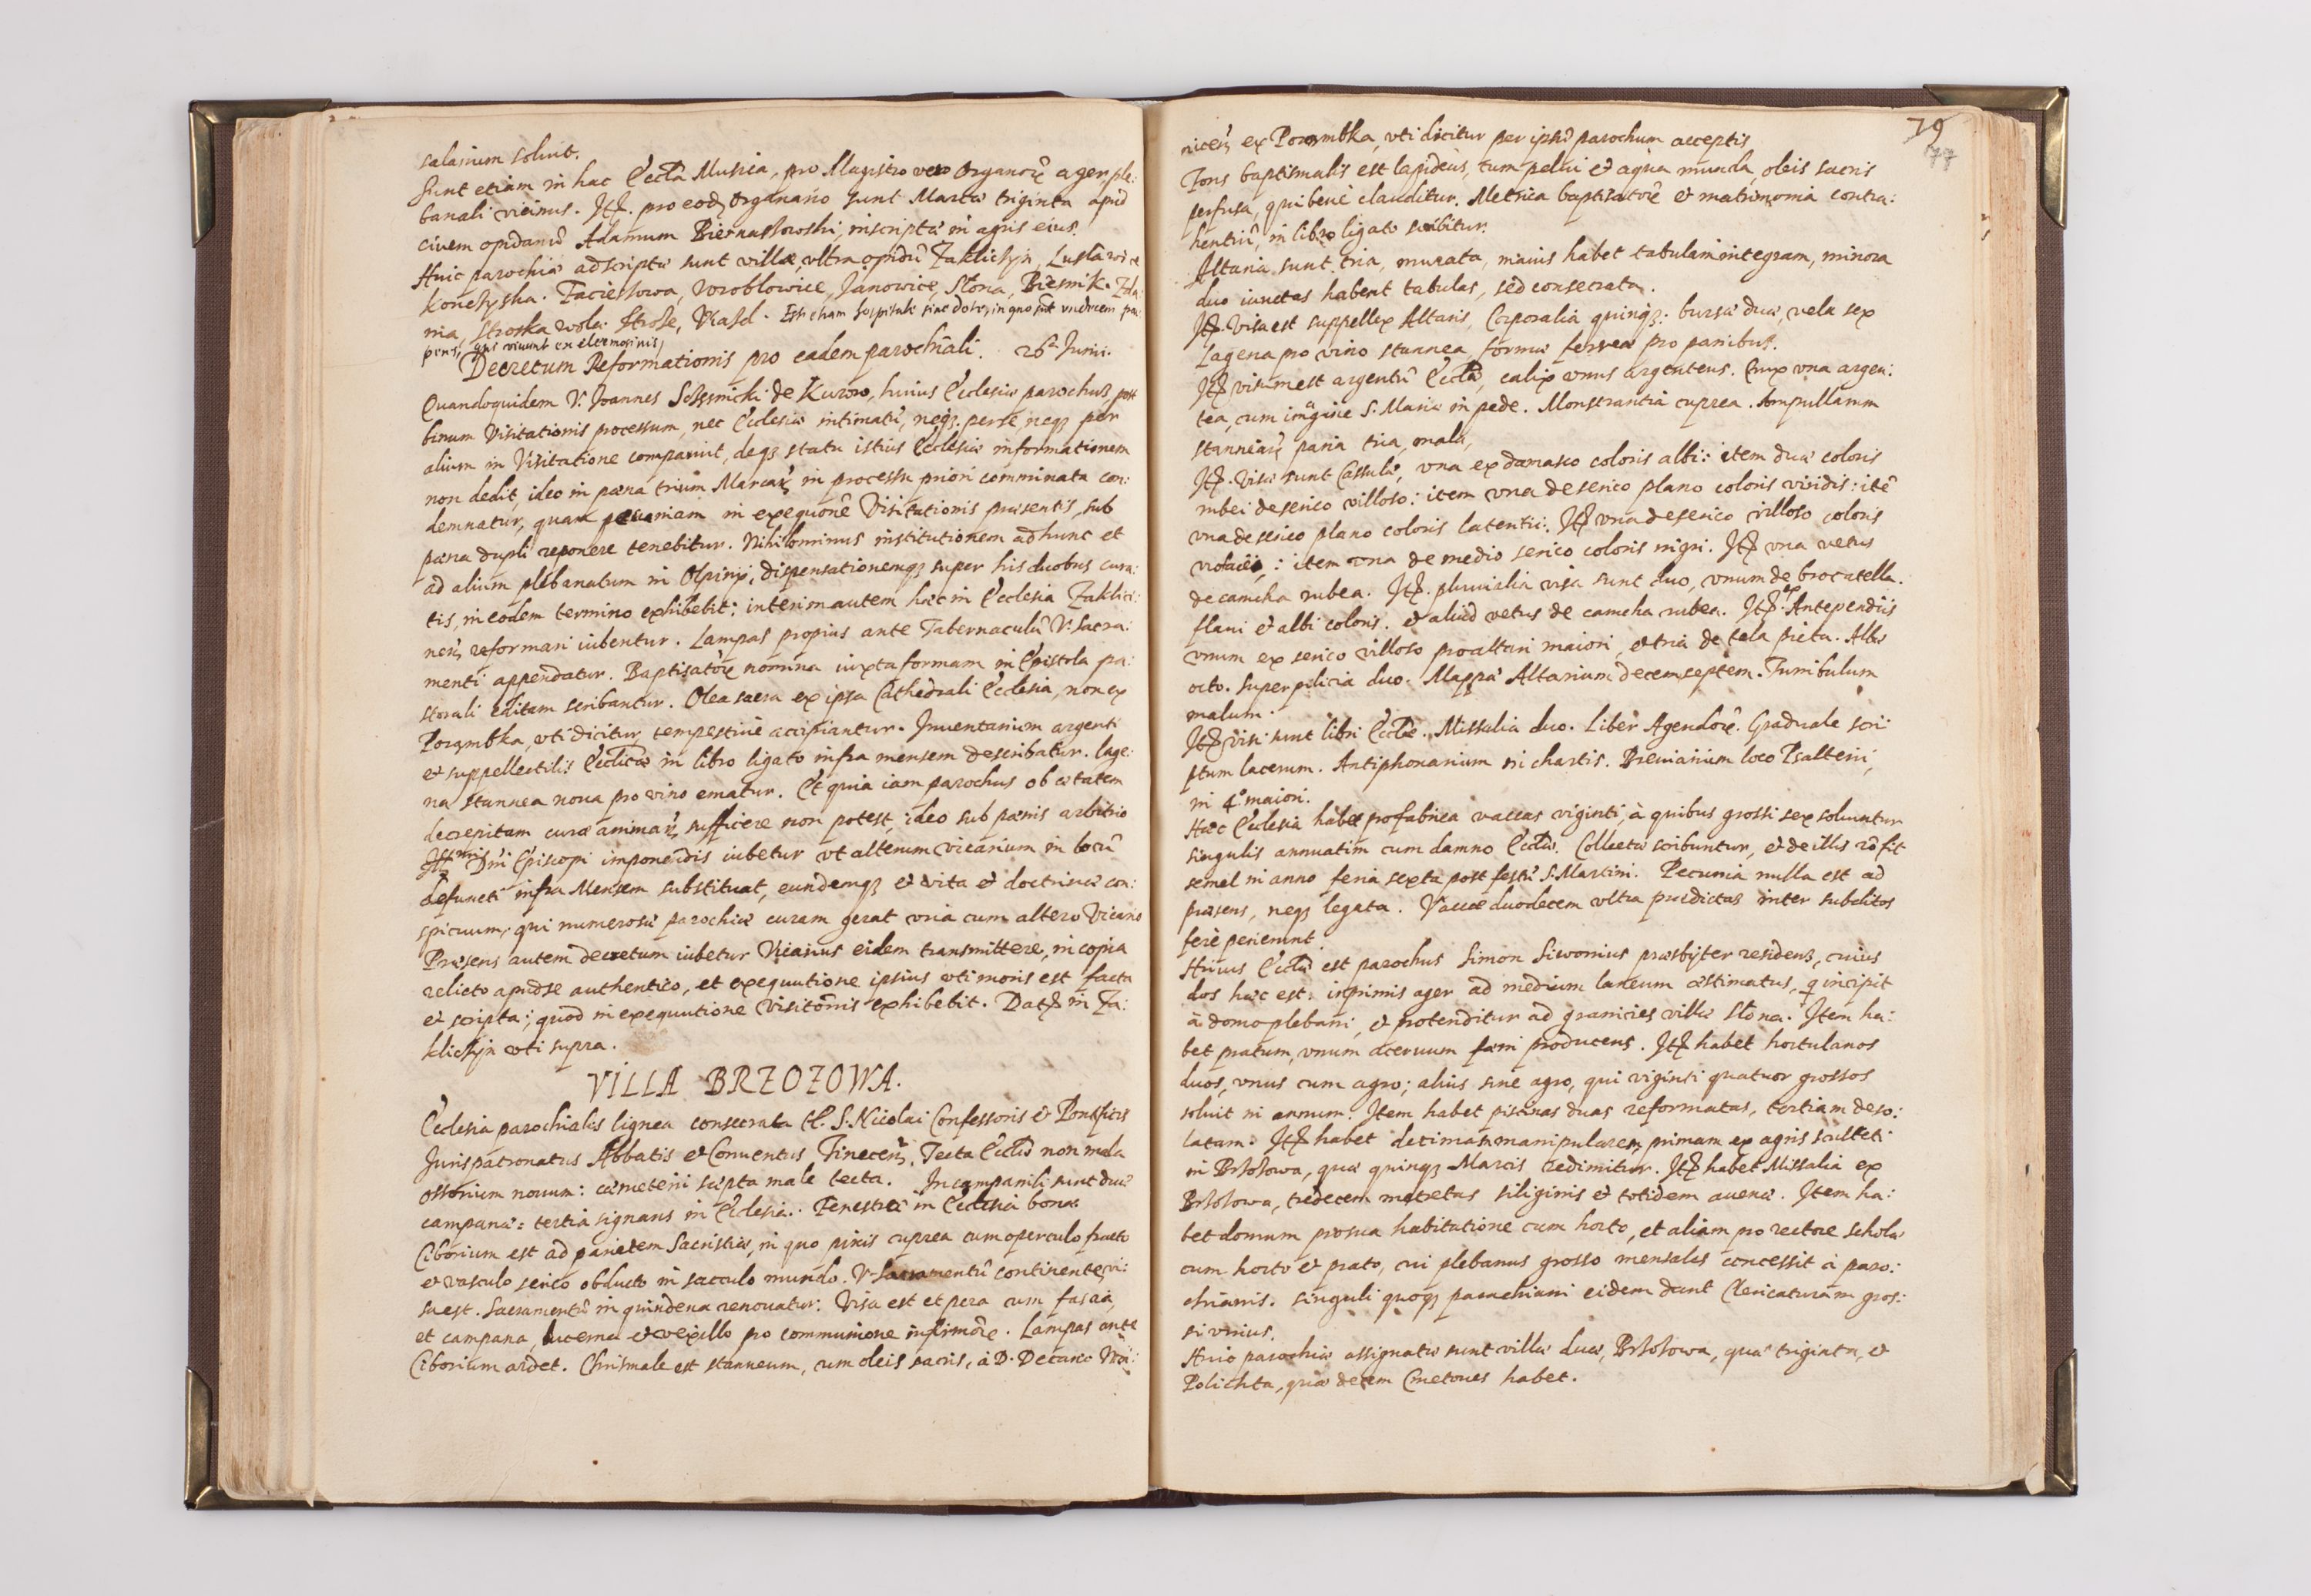 salarium soluit.
Sunt etiam in hac Eccła Musica, pro Magistro vero Organorũ ager ple:
banali vicinus. Itẽ. pro eodẽ Organario sunt Marcæ triginta apud
ciuem opidanũ Adamum Biernassowski, inscriptæ in agris eius.
Huic parochiæ adscriptæ sunt villæ, vltra opidũ Zaklicżyn, Luslawice
Koncżyska. Facieszowa, Wroblowice, Janowice, Słona, Biesnik. Zda:
nia, Stroska wola Stroże, Wiasd. Est etiam hospitale sine dote, in quo sũt vndecim pau:
peres, qui viuunt ex elemosinis,
Decretum Reformationis pro eadem parochiali. 26ª Junii.
Quandoquidem V. Joannes de Kurow, huius Ecclesiæ parochus, post
binum Visitationis processum, nec Ecclesiæ intimatũ, neqз. per se, neqз per
alium in Visitatione comparuit, deqз statu istius Ecclesiæ informationem
non dedit, ideo in pæna trium Marcarũ in processu priori comminata con:
demnatur, quam pecuniam in exequõne Visitationis præsentis, sub
pæna dupli reponere tenebitur. Nihilominus institutionem ad hunc et
ad alium plebanatum in Olpiny, dispensationemqз super his duobus cura:
tis, in eodem termino exhibebit; interim autem hæc in Ecclesia Zaklici:
neñ reformari iubentur. Lampas propius ante Tabernaculũ V. Sacra:
menti appendatur. Baptisatorũ nomina iuxta formam in Epistola pa:
storali editam scribantur. Olea sacra ex ipsa Cathedrali Ecclesia, non ex
Porąmbka, vti dicitur, tempestiue accipiantur. Inuentarium argenti
et suppellectilis Ecclicæ in libro ligato infra mensem describatur. lage:
na stannea noua pro vino ematur. Et quia iam parochus ob ætatem
decrepitam curæ animarũ sufficere non potest, ideo sub pænis arbitrio
Illmi Dñi Episcopi imponendis iubetur vt alterum vicarium in locũ
defuncti infra Mensem substituat, eundemqз et vita et doctrina con:
spicuum, qui numerosæ parochiæ curam gerat vna cum altero Vicario
Præsens autem decretum iubetur Vicarius eidem transmittere, in copia
relicto apud se authentico, et exequutione ipsius vti moris est facta
et scripta; quod in exequutione Visitõnis exhibebit. Datũ in Za:
klicżyn vti supra.
VILLA BRZOZOWA.
Ecclesia parochialis lignea consecrata tt. S. Nicolai Confessoris et Pontificis
Jurispatronatus Abbatis et Conuentus Tineceñ. Tecta Ecclæ non mala
ossorium nouum: cæmeterii septa male tecta. In campanili sunt duæ
campanæ: tertia signans in Ecclesia. Fenestræ in Ecclesia bonæ.
Ciborium est ad parietem Sacristiæ, in quo pixis cuprea cum operculo fracto
et vasculo serico obducto in sacculo mundo. V. Sacramentũ continente, vi:
sa est. Sacramentũ in quindena renouatur. Visa est et pera cum fascia,
et campana, lucerna et vexillo pro communione infirmorũ. Lampas ante
Ciborium ardet. Chrismale est stanneum, cum oleis sacris, à D. Decano Woi:
79
77
niceñ ex Porąmbka, vti dicitur per ipsũ parochum acceptis
Fons baptismalis est lapideus, cum pelui et aqua munda, oleis sacris
perfusa, qui bene clauditur. Metrica baptisatorũ et matrimonia contra:
hentiũ, in libro ligato scribitur.
Altaria sunt tria, murata, maius habet tabulam integram, minora
duo iunctas habent tabulas, sed consecrata.
Itẽ. Visa est suppellex Altaris, Corporalia quinqз: bursæ duæ, vela sex
Lagena pro vino stannea, formæ ferreæ pro panibus.
Itẽ visum est argentũ Ecclæ, calix vnus argenteus. Crux vna argen:
tea, cum imagine S. Mariæ in pede. Monstrantia cuprea. Ampullarum
stannearũ paria tria, mala,
Itẽ. Visæ sunt Casulæ, vna ex damasco coloris albi: item duæ coloris
rubei de serico villoso: item vna de serico plano coloris viridis: itẽ
vna de serico plano coloris latentii. Itẽ vna de serico villoso coloris
violacei: item vna de medio serico coloris nigri. Itẽ vna vetus
de camcha rubea. Itẽ. pluuialia visa sunt duo, vnum de brocatella
flaui et albi coloris. et aliud vetus de camcha rubea. Itẽ. ex Antependiis
vnum ex serico villoso pro altari maiori, et tria de tela picta. Albæ
octo. Superpelicia duo. Mappæ Altarium decem septem. Turribulum
malum.
Itẽ visi sunt libri Ecclæ. Missalia duo. Liber Agendorũ. Graduale scri:
ptum lacerum. Antiphonarium in chartis. Breuiarium loco Psalterii,
in 4° maiori.
Hæc Ecclesia habet pro fabrica vaccas viginti, à quibus grossi sex soluuntur
singulis annuatim cum damno Ecclæ. Collectæ scribuntur, et de illis rõ fit
semel in anno feria sexta post festũ S. Martini. Pecunia nulla est ad
præsens, neqз legata. Vaccæ duodecem vltra prædictas inter subditos
ferè perierunt.
Huius Ecclæ est parochus Simon Siwonius præsbyter residens, cuius
dos hæc est: inprimis ager ad medium laneum æstimatus, q̃ incipit
à domo plebani, et protenditur ad granicies villæ Słona. Item ha:
bet pratum, vnum aceruum fæni producens. Itẽ habet hortulanos
duos, vnus cum agro; alius sine agro, qui viginti quatuor grossos
soluit in annum. Item habet piscinas duas reformatas, tertiam deso:
latam. Itẽ habet decimam manipularem, primam ex agris sculteti
in Brżożowa, quæ quinqз Marcis redimitur. Itẽ habet Missalia ex
Brżożowa, tredecem metretas siliginis et totidem auenæ. Item ha:
bet domum pro sua habitatione cum horto, et aliam pro rectore scholæ
cum horto et prato, cui plebanus grosso mensales concessit à paro:
chianis. singuli quoqз parochiani eidem dant Clericaturam gros:
si vnius.
Huic parochiæ assignatæ sunt villæ duæ, Brżożowa, quæ triginta, et
Polichta, quæ decem Cmetones habet.